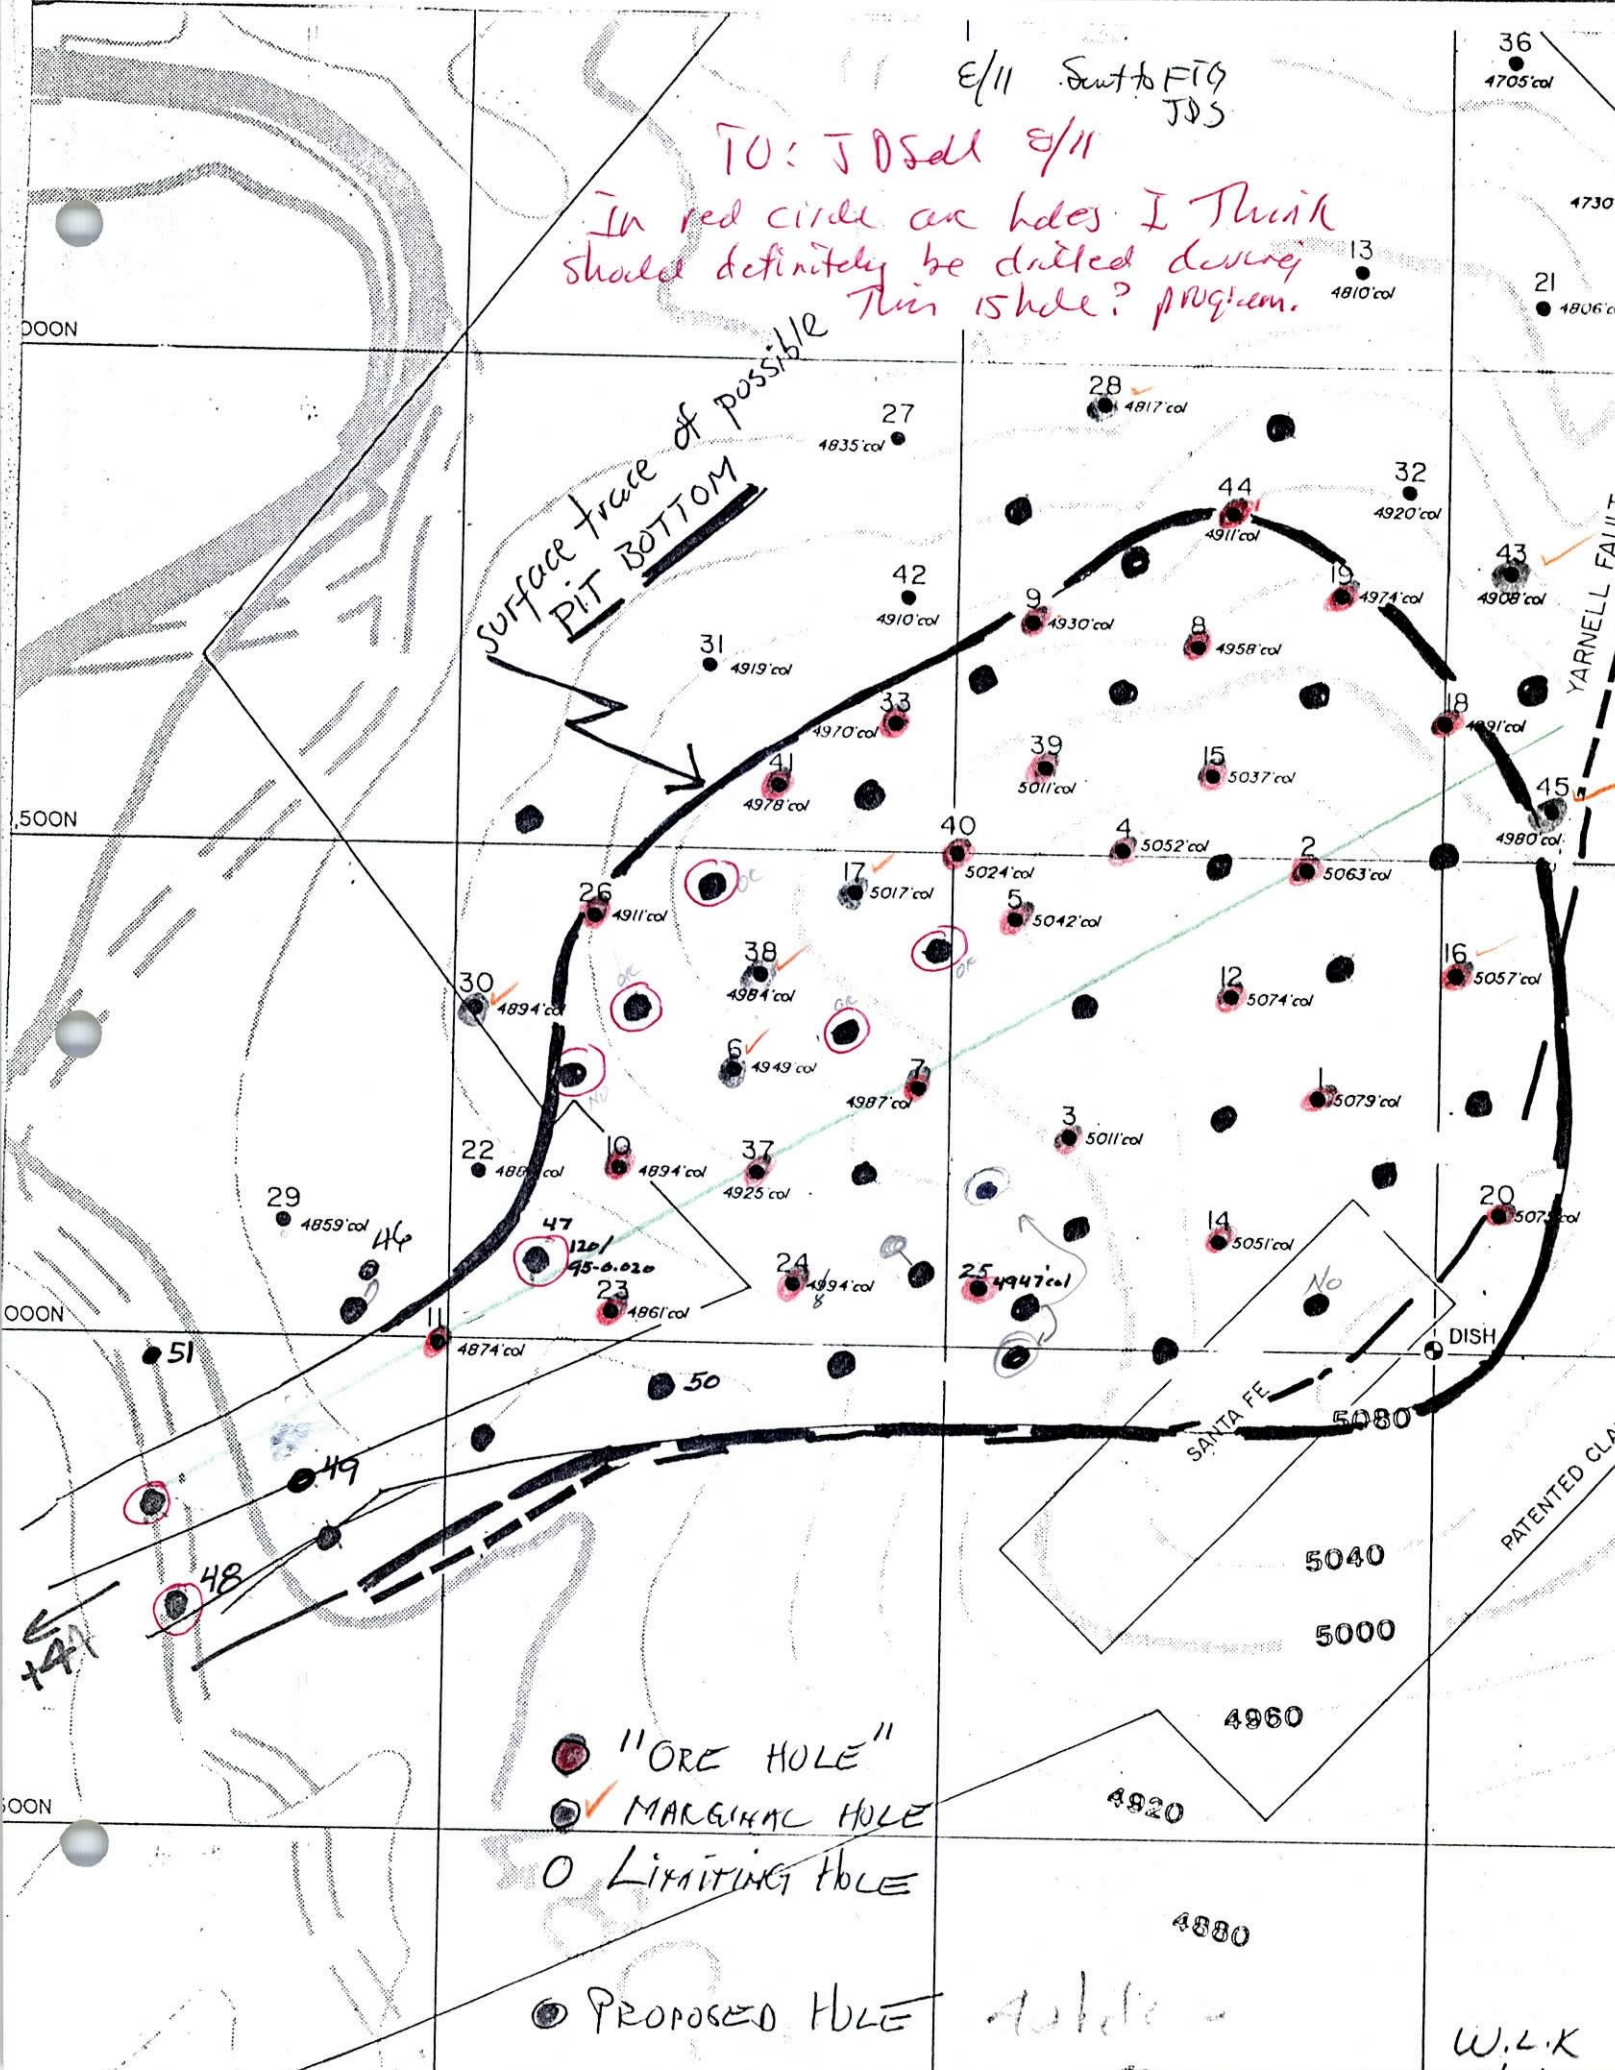 8/11 Sent to FTG
JDS
TO: JDSell 8/11
In red circle are holes I Think
should definitely be drilled during
This 15 hole? program.
36
4705'col
4730
13
4810'col
21
4806'c
000N
surface trace of possible
PIT BOTTOM
28
4817'col
27
4835'col
44
4911'col
32
4920'col
43
4908'col
YARNELL FAULT
42
4910'col
9
4930'col
19
4974'col
8
4958'col
31
4919'col
33
4970'col
18
4991'col
41
4978'col
39
5011'col
15
5037'col
45
4980'col
,500N
40
5024'col
4
5052'col
2
5063'col
17
5017'col
OK
26
4911'col
5
5042'col
OK
38
4984'col
16
5057'col
12
5074'col
30
4894'col
OK
OK
6
4949'col
NO
7
4987'col
1
5079'col
3
5011'col
22
10
4894'col
37
4925'col
29
4859'col
46
47
120/
95-0.020
20
14
5051'col
24
4994'col
8
25
4947'col
23
4861'col
NO
000N
11
4874'col
DISH
51
50
SANTA FE
5080
49
PATENTED CLA
48
5040
5000
+41
4960
"ORE HOLE"
4920
500N
MARGINAL HOLE
O LIMITING HOLE
4880
PROPOSED HOLE
W.L.K